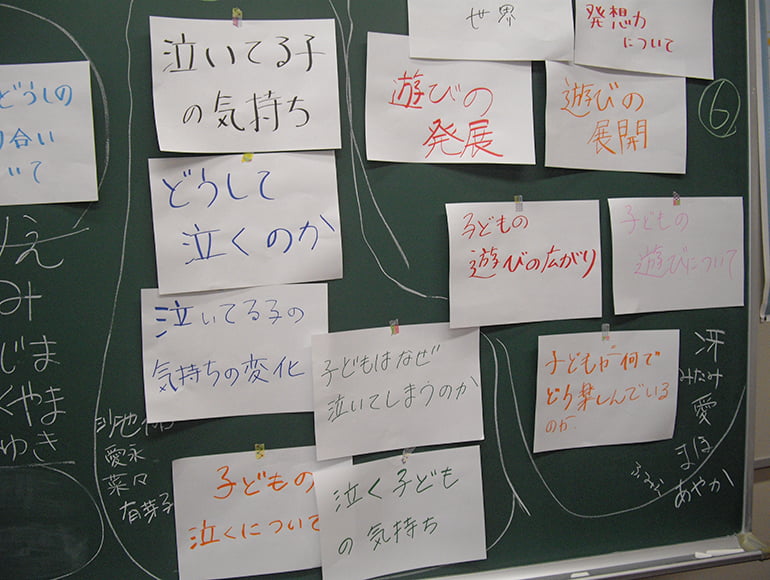 どうしの
り合い
いて
泣いてる子
の気持ち
どうして
泣くのか
泣いてる子の
気持ちの変化
子どもはなぜ
泣いてしまうのか
子どもの
泣くについて
泣く子ども
の気持ち
愛永
菜々
有芽子
世界
発想力
について
遊びの
発展
遊びの
展開
⑥
子どもの
遊びの広がり
子どもの
遊びについて
子どもが何で
どう楽しんでいる
のか
冴
みなみ
愛
まほ
あやか
え
み
じま
くやま
ゆき